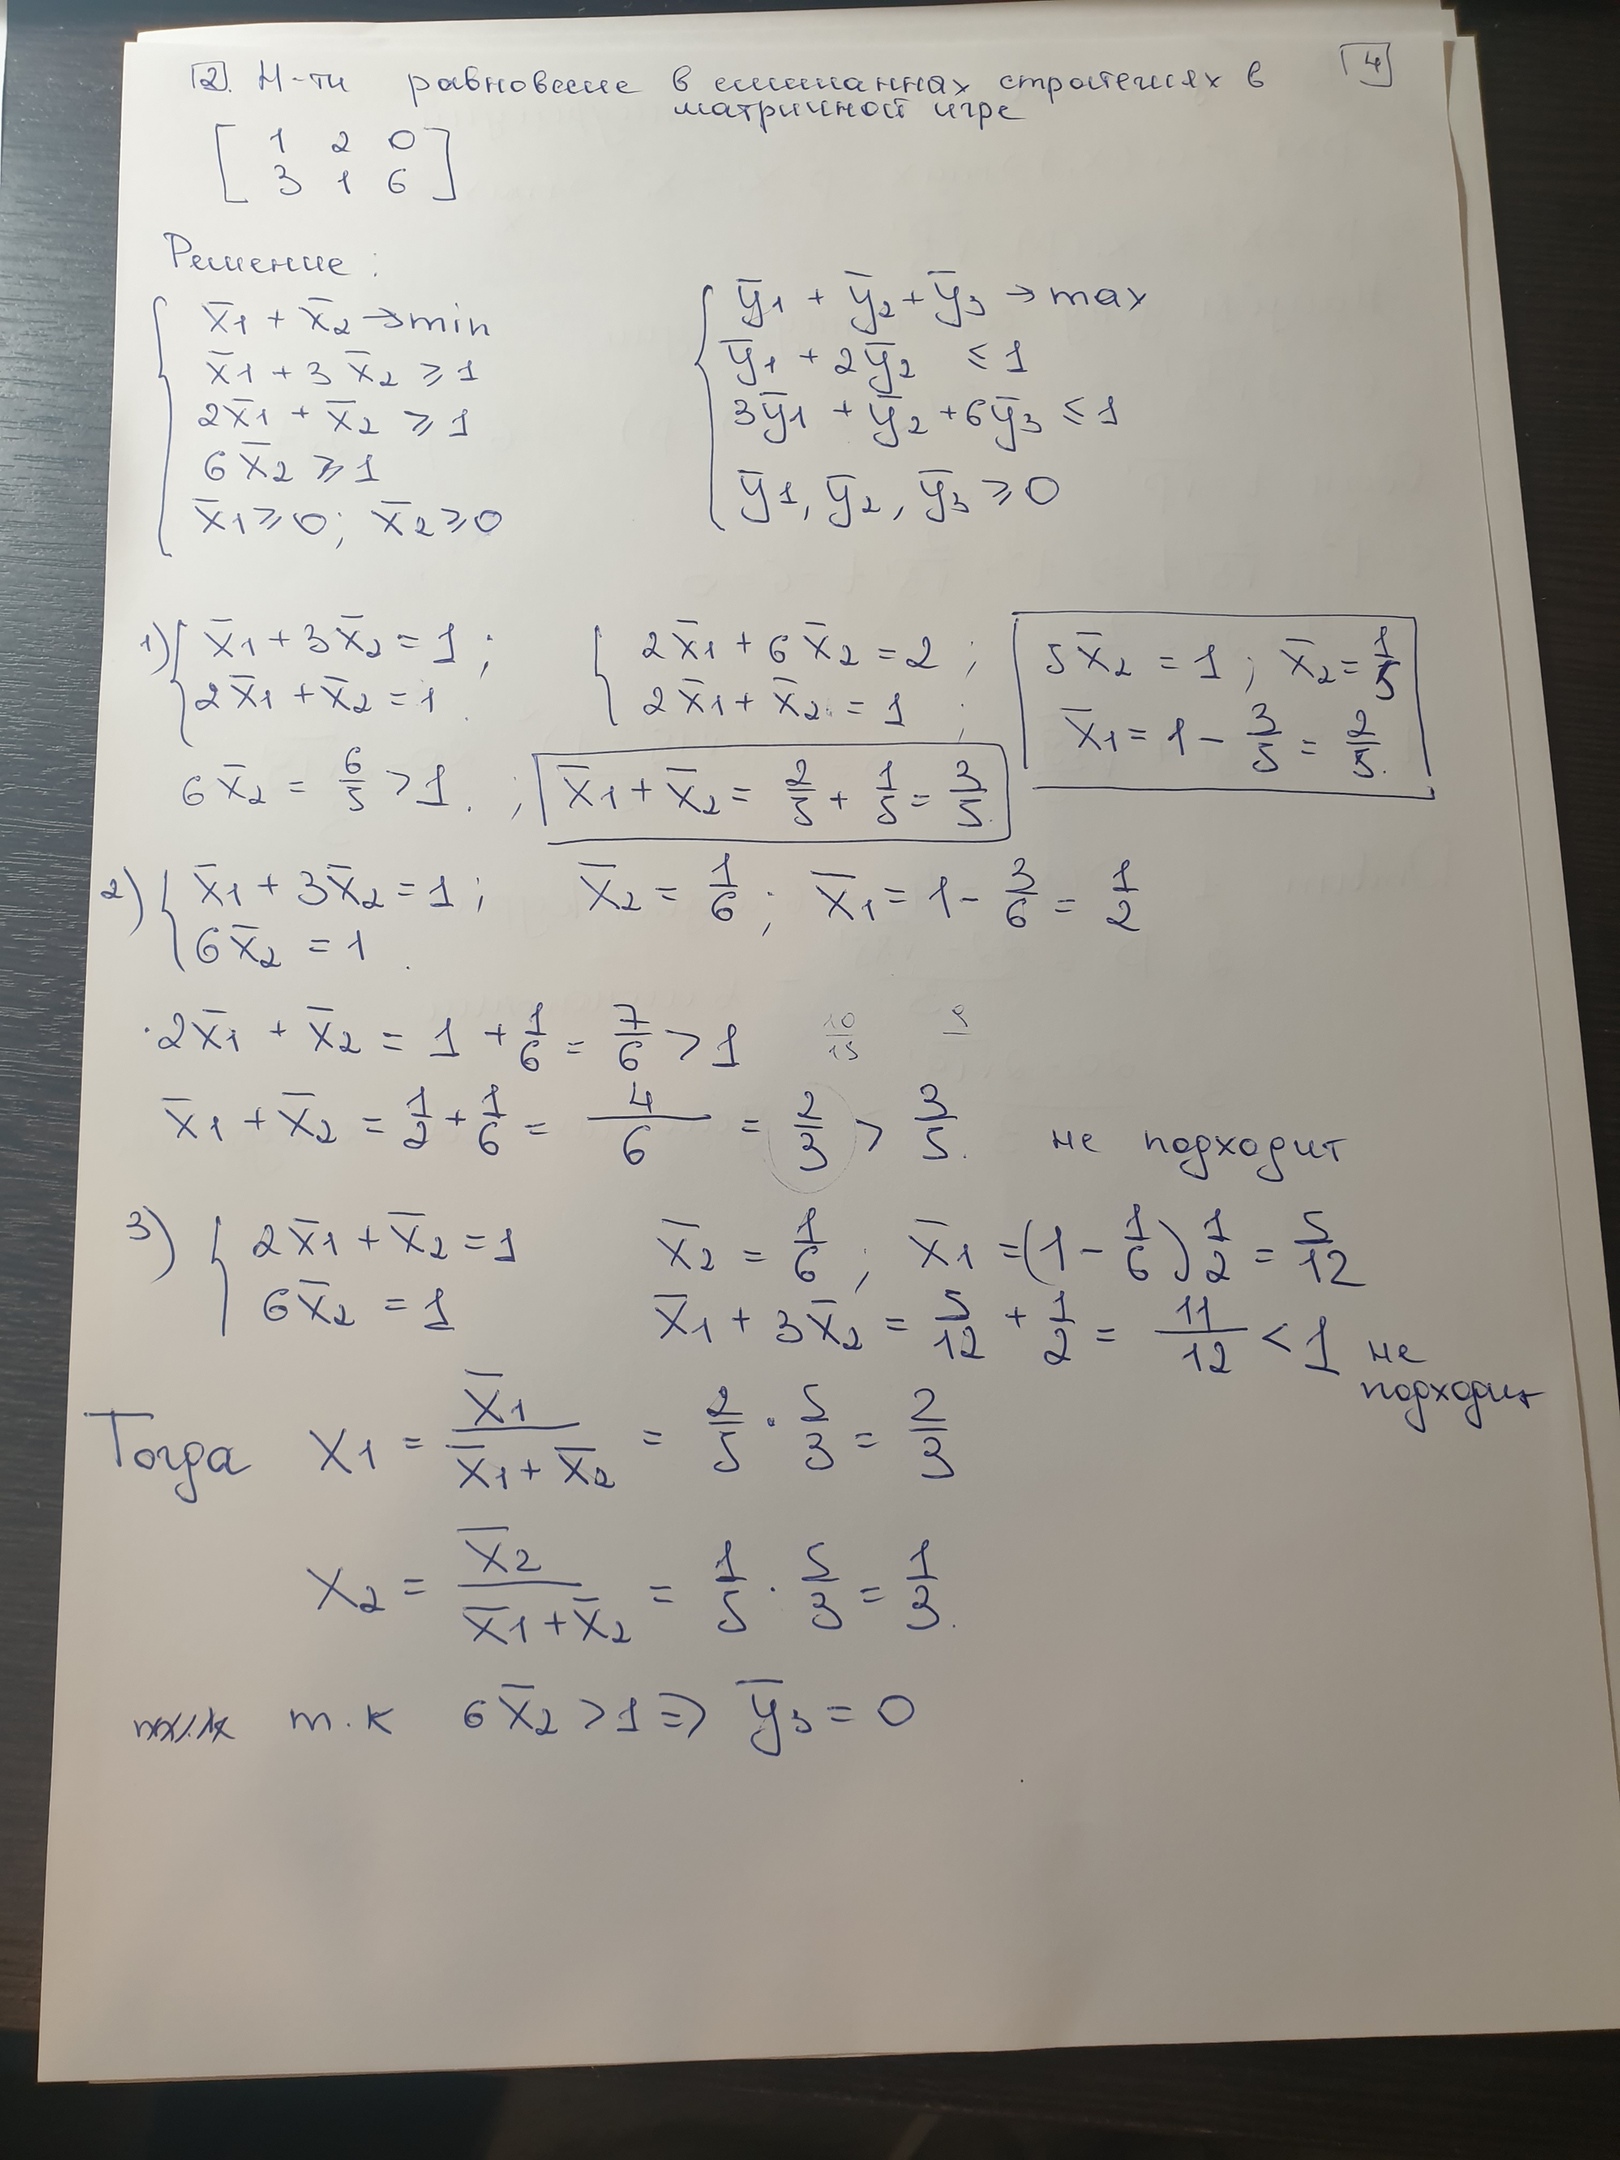 2. Н-ти равновесие в смешанных стратегиях в
матричной игре
4
[ 1 2 0
3 1 6 ]
Решение:
{ x̄1 + x̄2 → min
x̄1 + 3x̄2 ≥ 1
2x̄1 + x̄2 ≥ 1
6x̄2 ≥ 1
x̄1 ≥ 0; x̄2 ≥ 0
{ ȳ1 + ȳ2 + ȳ3 → max
ȳ1 + 2ȳ2 ≤ 1
3ȳ1 + ȳ2 + 6ȳ3 ≤ 1
ȳ1, ȳ2, ȳ3 ≥ 0
1) { x̄1 + 3x̄2 = 1;
2x̄1 + x̄2 = 1.
{ 2x̄1 + 6x̄2 = 2;
2x̄1 + x̄2 = 1;
5x̄2 = 1; x̄2 = 1/5
x̄1 = 1 - 3/5 = 2/5.
6x̄2 = 6/5 > 1. ; x̄1 + x̄2 = 2/5 + 1/5 = 3/5.
2) { x̄1 + 3x̄2 = 1; x̄2 = 1/6; x̄1 = 1 - 3/6 = 1/2
6x̄2 = 1.
2x̄1 + x̄2 = 1 + 1/6 = 7/6 > 1 10/15 9
x̄1 + x̄2 = 1/2 + 1/6 = 4/6 = 2/3 > 3/5. не подходит
3) { 2x̄1 + x̄2 = 1 x̄2 = 1/6; x̄1 = (1 - 1/6) 1/2 = 5/12
6x̄2 = 1 x̄1 + 3x̄2 = 5/12 + 1/2 = 11/12 < 1 не
подходит
Тогда x1 = x̄1/(x̄1 + x̄2) = 2/5 · 5/3 = 2/3
x2 = x̄2/(x̄1 + x̄2) = 1/5 · 5/3 = 1/3.
т.к 6x̄2 > 1 ⇒ ȳ3 = 0